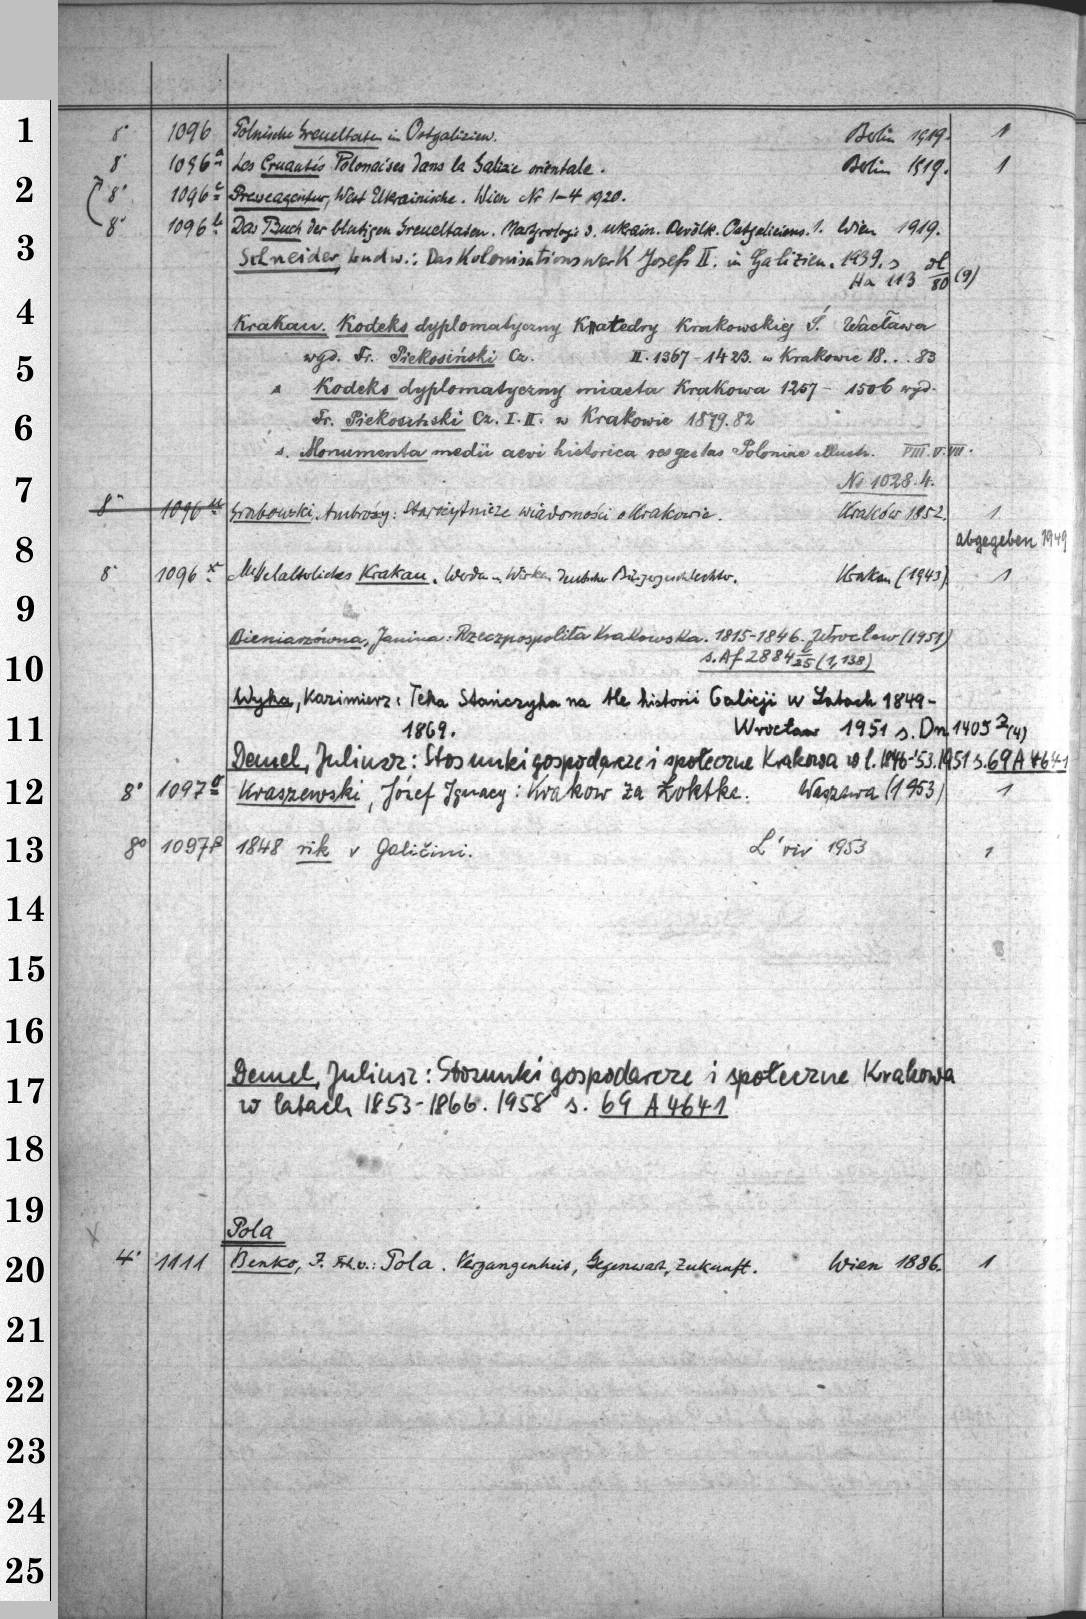 1
8° 1096 Polnische Greueltaten in Ostgalizien. Berlin 1919. 1
8° 1096 a Les Cruautés Polonaises dans la Galizie orientale. Berlin 1919. 1
2
8° 1096 c Presseagentur, West Ukrainische. Wien Nr 1-4 1920.
8° 1096 b Das Buch der blutigen Greueltaten. Martyrologie d. ukrain. Bevölk. Ostgaliziens. 1. Wien 1919.
3
Schneider, Ludw.: Das Kolonisationswerk Josefs II. in Galizien. 1939. s
Ha 113 80 (9)
4
Krakau. Kodeks dyplomatyczny Katedry Krakowskiej Ś. Wacława
5
wyd. Fr. Piekosiński Cz. II. 1367-1423. w Krakowie 18...83
Kodeks dyplomatyczny miasta Krakowa 1257-1506 wyd.
6
Fr. Piekosiński Cz. I. II. w Krakowie 1879. 82
s. Monumenta medii aevi historica res gestas Poloniae illustr. VIII. V. VII.
7
No 1028.4.
8° 1096 Grabowski, Ambroży: Starożytnicze wiadomości o Krakowie. Kraków 1852. 1
8
abgegeben 1949
8° 1096 x Mittelalterliches Krakau. Werden u. Wirken deutscher Bürgergeschlechter. Krakau (1943) 1
9
Bieniarzówna, Janina: Rzeczpospolita Krakowska. 1815-1846. Wrocław (1951)
10
s. Af 2884 25 (1,138)
Wyka, Kazimierz: Teka Stańczyka na tle historii Galicji w Latach 1849-
11
1869. Wrocław 1951 s. Dn 1405 (4)
Demel, Juliusz: Stosunki gospodarcze i społeczne Krakowa w l. 1846-'53. 1951 s. 69 A 4641
12
8° 1097 a Kraszewski, Józef Ignacy: Krakow za Łoktka. Waszawa (1953) 1
13
8° 1097 β 1848 rik v Galičini. L'viv 1953 1
14
15
16
17
Demel, Juliusz: Stosunki gospodarcze i społeczne Krakowa
w latach 1853-1866. 1958 s. 69 A 4641
18
19
Pola
20
4° 1111 Benko, J. Frh. v.: Pola. Vergangenheit, Gegenwart, Zukunft. Wien 1886. 1
21
22
23
24
25